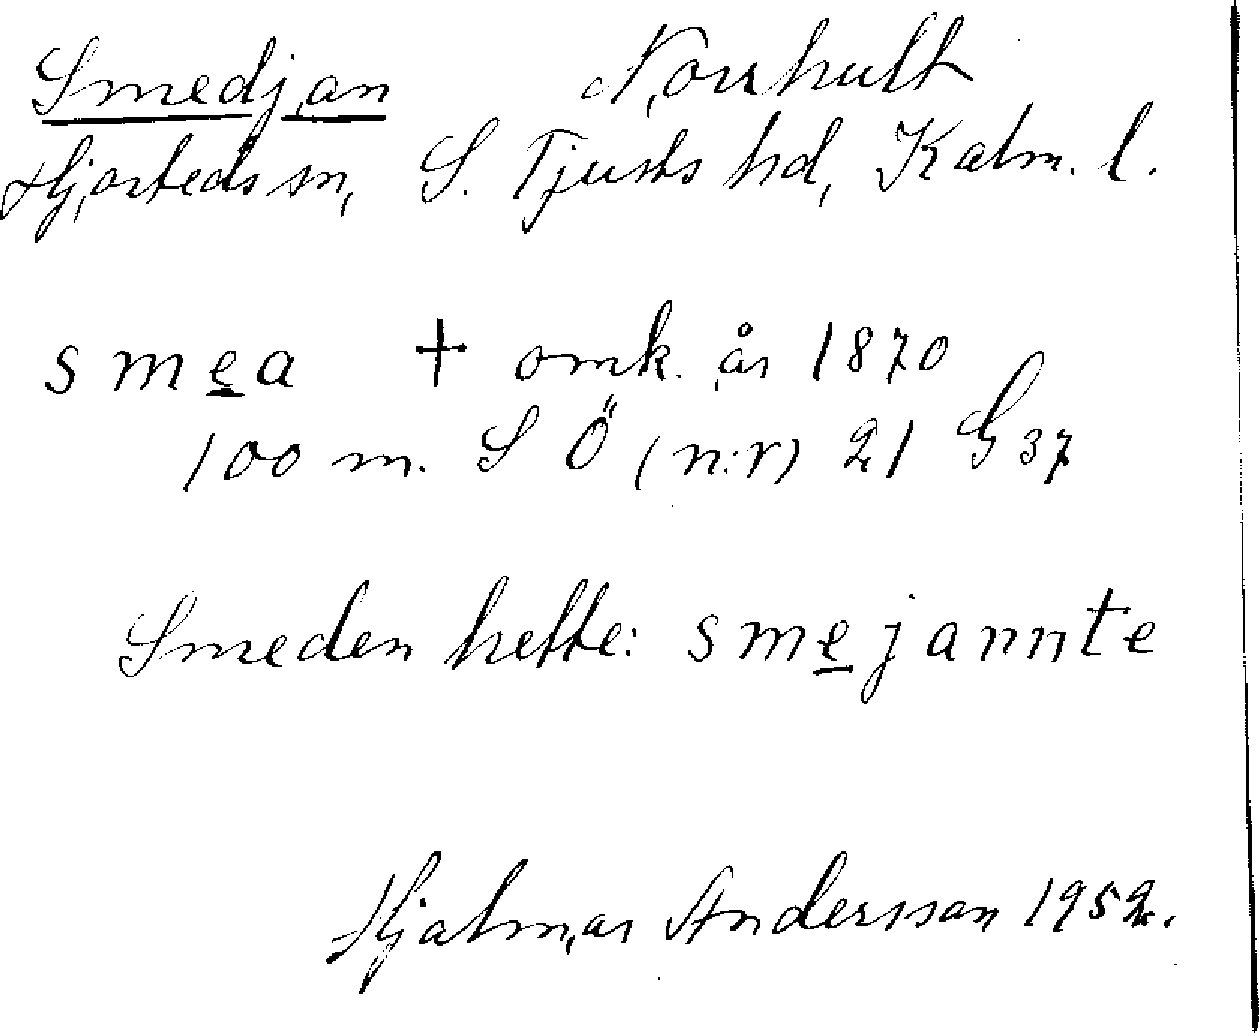 Smedjan Norrhult
Hjorteds sn, S. Tjusts hd, Kalm. l.
smea † omk. år 1870
100 m. S Ö (n:r) 21 G 37
Smeden hette: smejannte
Hjalmar Andersson 1952.